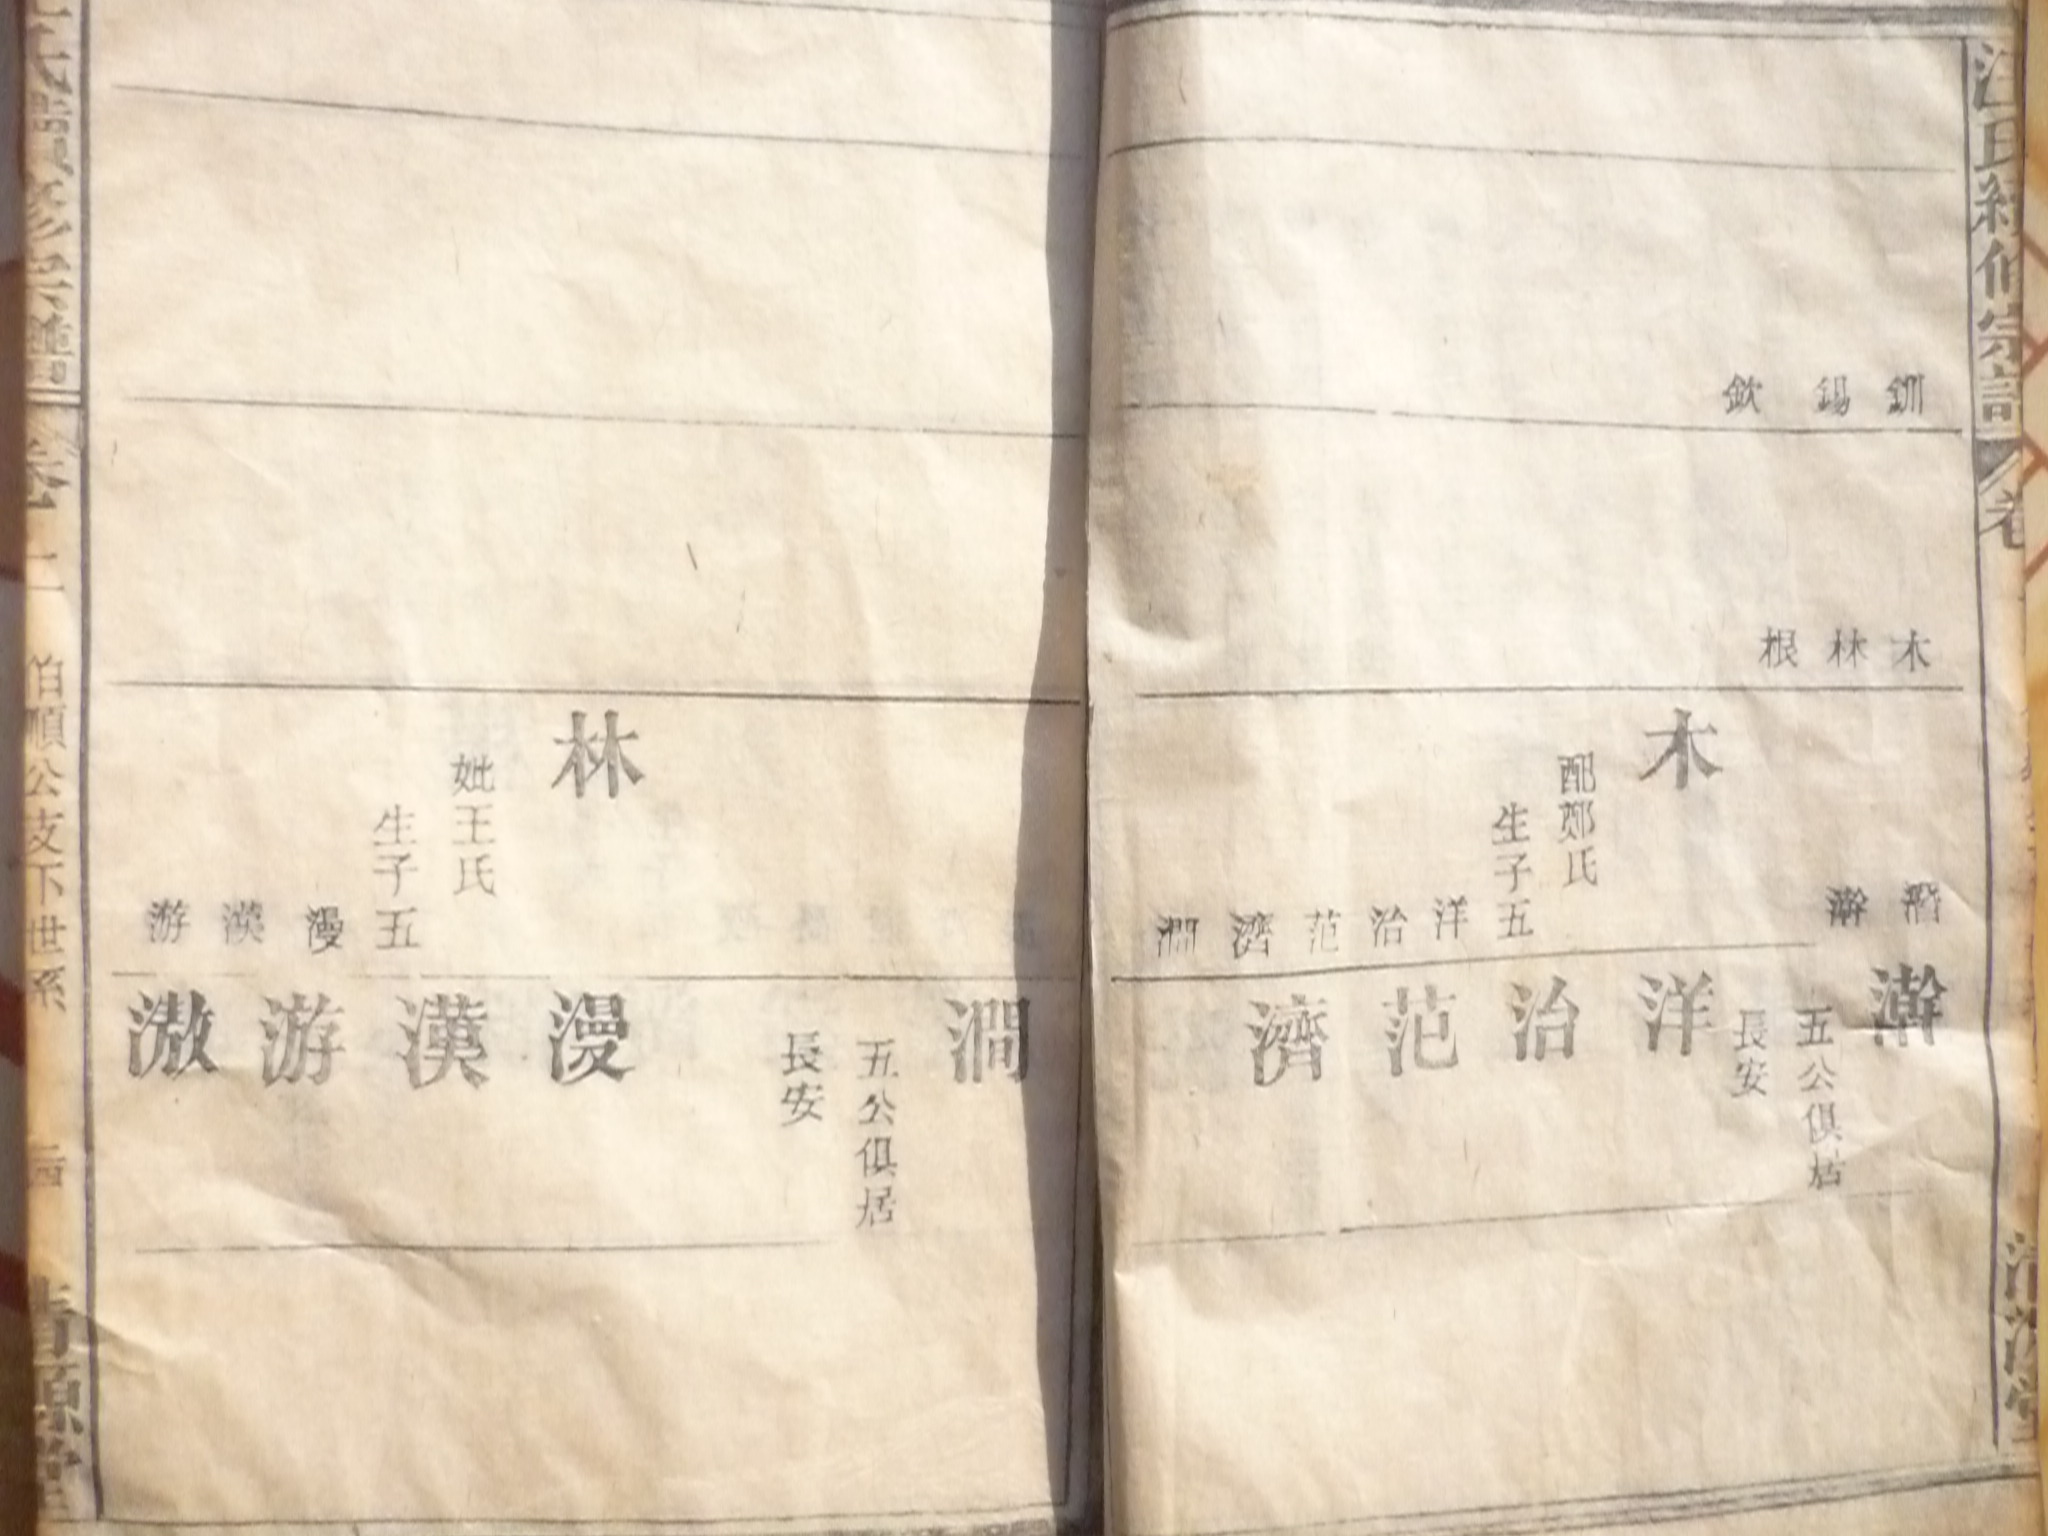 汪氏續修宗譜
卷
清源堂
釧
錫
欽
木
林
根
木
配鄭氏
生子五
洋
治
范
濟
澗
澣
澣
五公俱居
長安
洋
治
范
濟
澗
五公俱居
長安
林
妣王氏
生子五
漫
漢
游
漫
漢
游
滶
氏續修宗譜
卷二
伯順公支下世系
清源堂